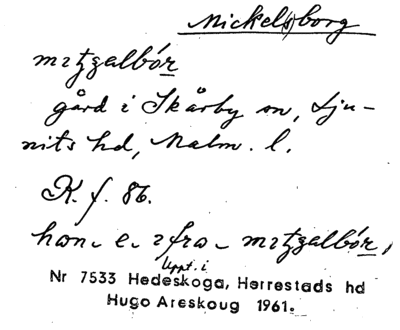 Mickel(s)borg
mɪʈgalbór
gård i Skårby sn, Lju-
nits hd, Malm. l.
R. f. 86.
hæn- e- ɿfra- mɪʈgalbór,
Uppt. i
Nr 7533 Hedeskoga, Herrestads hd
Hugo Areskoug 1961.